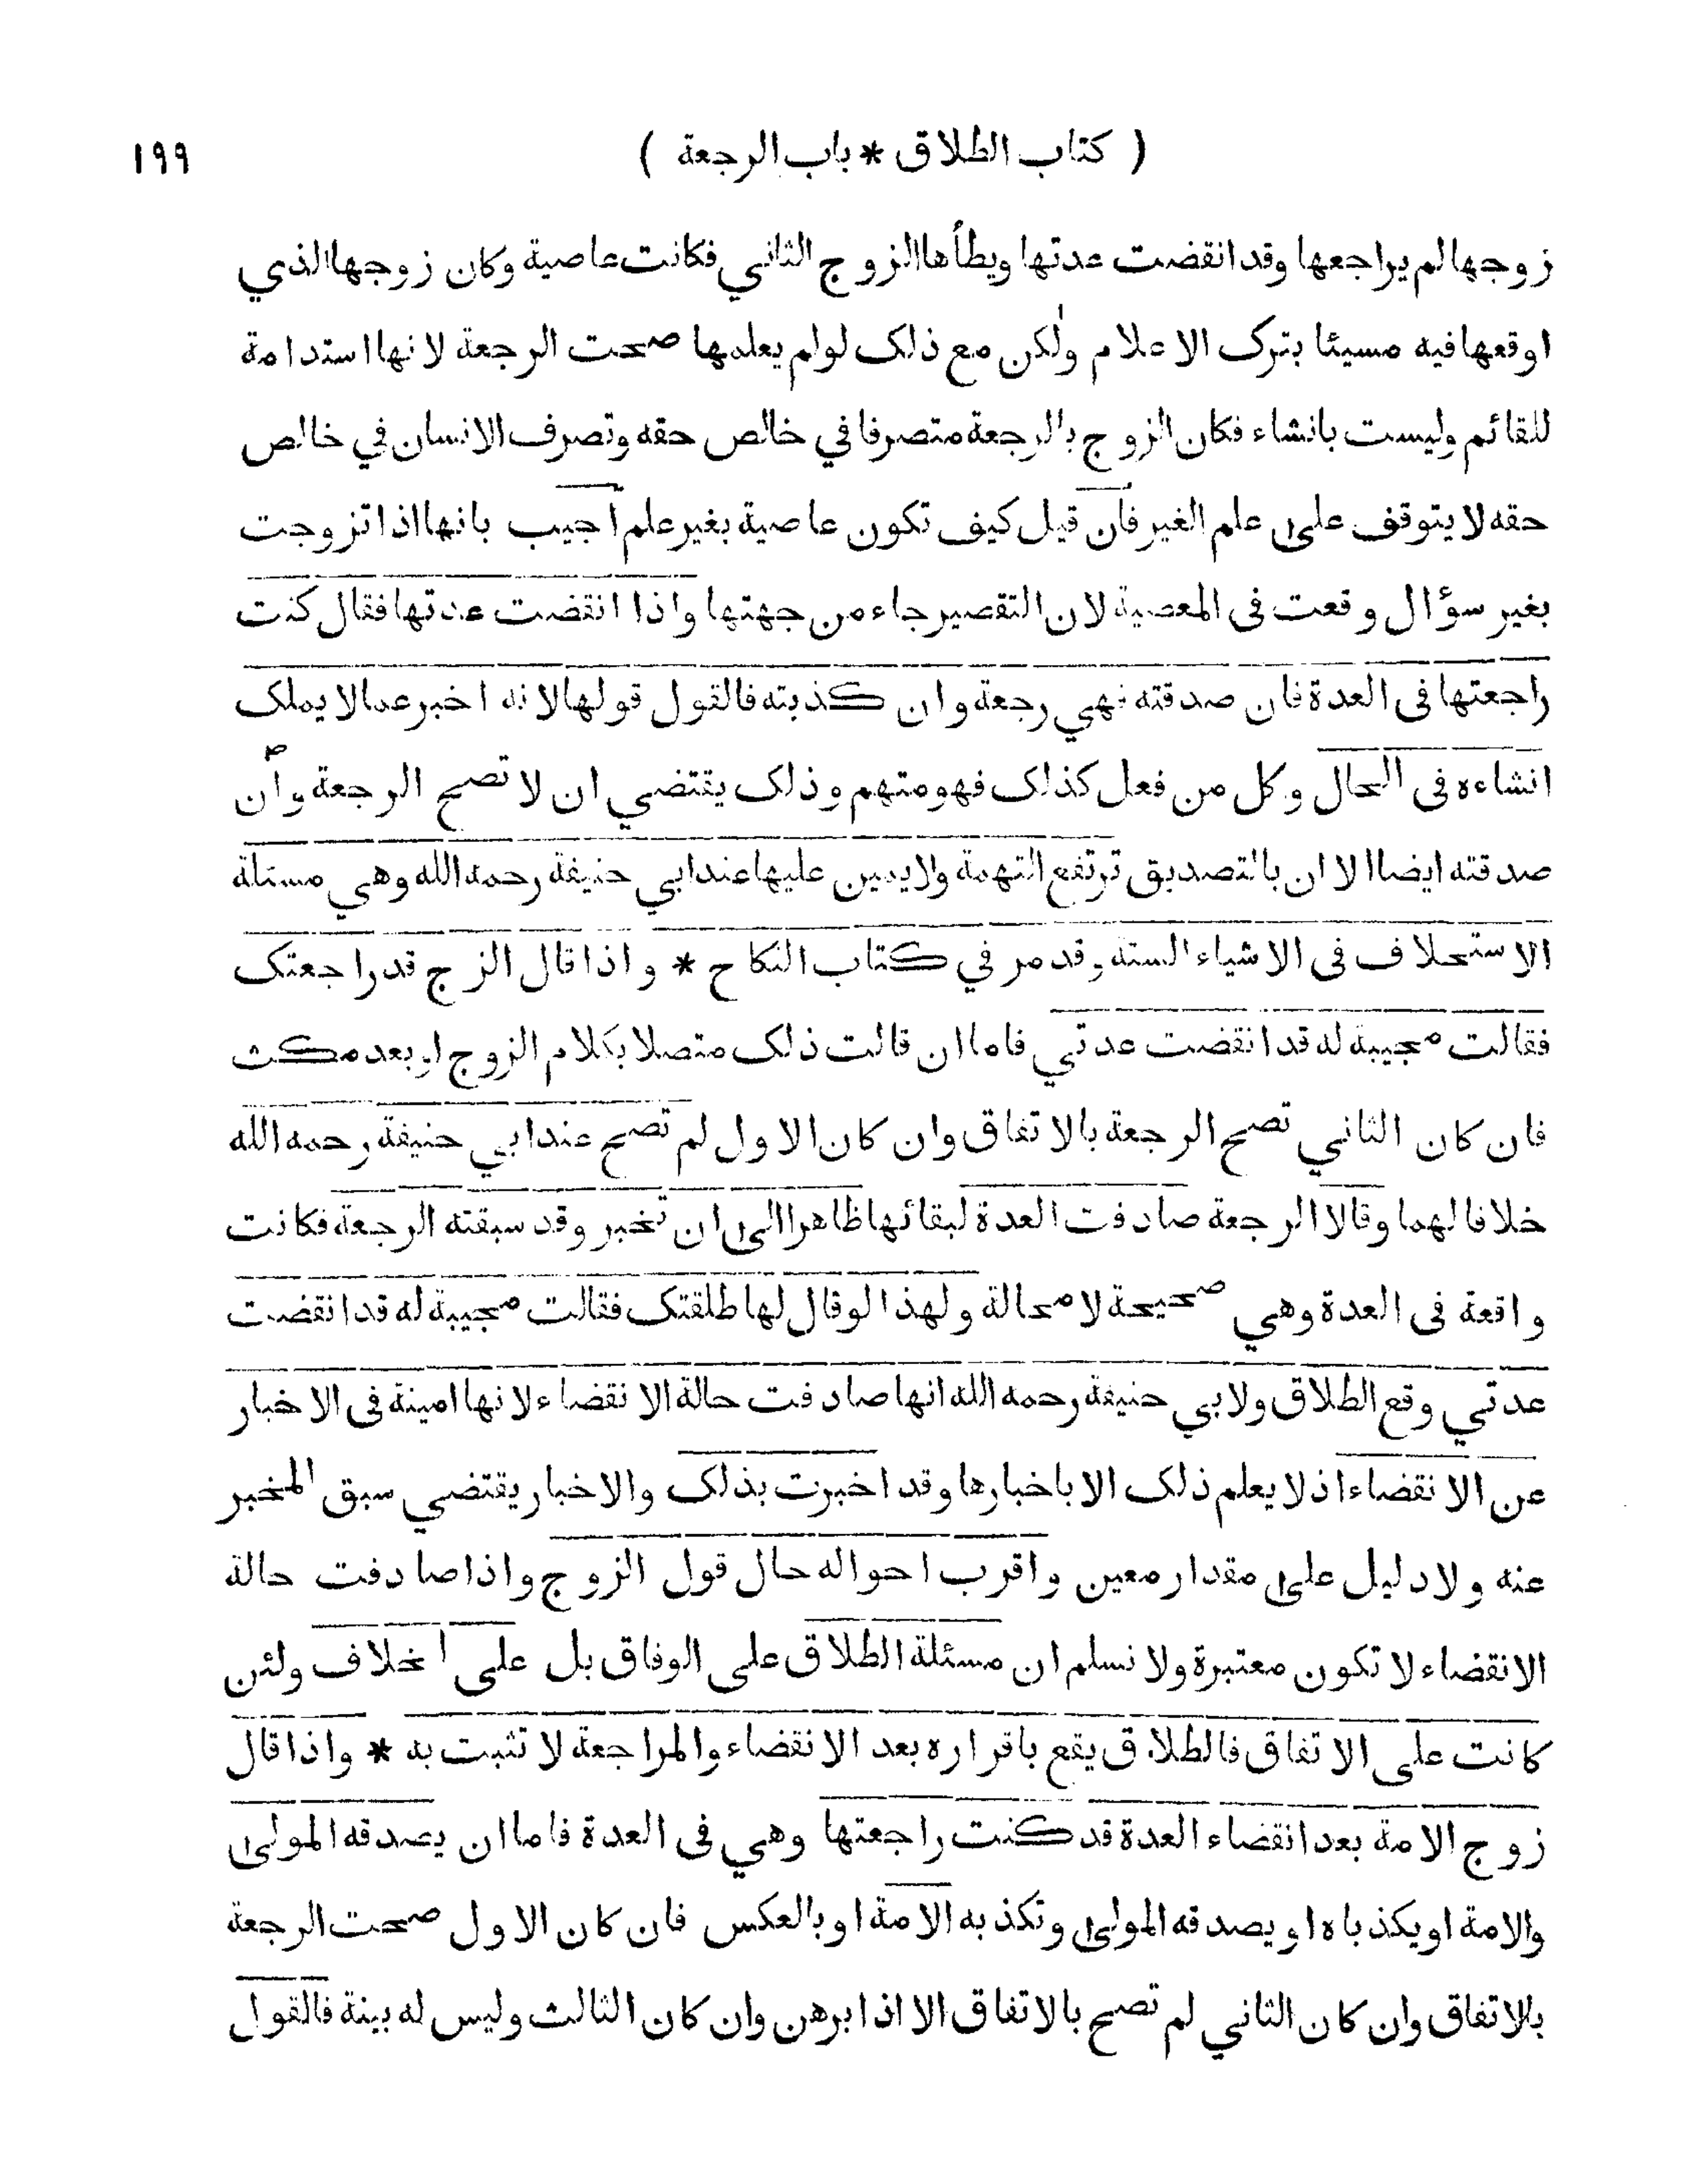 ( كتاب الطلاق * باب الرجعة ) ١٩٩
زوجها لم يراجعها وقد انقضت عدتها ويطأها الزوج الثاني فكانت عاصية وكان زوجها الذي
اوقعها فيه مسيئا بترك الاعلام ولكن مع ذلك لو لم يعلمها صحت الرجعة لانها استدامة
للقائم وليست بانشاء فكان الزوج بالرجعة متصرفا في خالص حقه وتصرف الانسان في خالص
حقه لا يتوقف على علم الغير فان قيل كيف تكون عاصية بغير علم اجيب بانها اذا تزوجت
بغير سؤال وقعت فى المعصية لان التقصير جاء من جهتها واذا انقضت عدتها فقال كنت
راجعتها فى العدة فان صدقته فهي رجعة وان كذبته فالقول قولها لانه اخبر عما لا يملك
انشاءه فى الحال وكل من فعل كذلك فهو متهم وذلك يقتضي ان لا تصح الرجعة وان
صدقته ايضا الا ان بالتصديق ترتفع التهمة ولا يمين عليها عند ابي حنيفة رحمه الله وهي مسئلة
الاستحلاف فى الاشياء الستة وقد مر في كتاب النكاح * واذا قال الزج قد راجعتك
فقالت مجيبة له قد انقضت عدتي فاما ان قالت ذلك متصلا بكلام الزوج او بعد مكث
فان كان الثاني تصح الرجعة بالاتفاق وان كان الاول لم تصح عند ابي حنيفة رحمه الله
خلافا لهما وقالا الرجعة صادفت العدة لبقائها ظاهرا الى ان تخبر وقد سبقته الرجعة فكانت
واقعة فى العدة وهي صحيحة لا محالة ولهذا لو قال لها طلقتك فقالت مجيبة له قد انقضت
عدتي وقع الطلاق ولابي حنيفة رحمه الله انها صادفت حالة الانقضاء لانها امينة فى الاخبار
عن الانقضاء اذ لا يعلم ذلك الا باخبارها وقد اخبرت بذلك والاخبار يقتضي سبق المخبر
عنه ولا دليل على مقدار معين واقرب احواله حال قول الزوج واذا صادفت حالة
الانقضاء لا تكون معتبرة ولا نسلم ان مسئلة الطلاق على الوفاق بل على الخلاف ولئن
كانت على الاتفاق فالطلاق يقع باقراره بعد الانقضاء والمراجعة لا تثبت به * واذا قال
زوج الامة بعد انقضاء العدة قد كنت راجعتها وهي فى العدة فاما ان يصدقه المولى
والامة او يكذباه او يصدقه المولى وتكذبه الامة او بالعكس فان كان الاول صحت الرجعة
بالاتفاق وان كان الثاني لم تصح بالاتفاق الا اذا برهن وان كان الثالث وليس له بينة فالقول